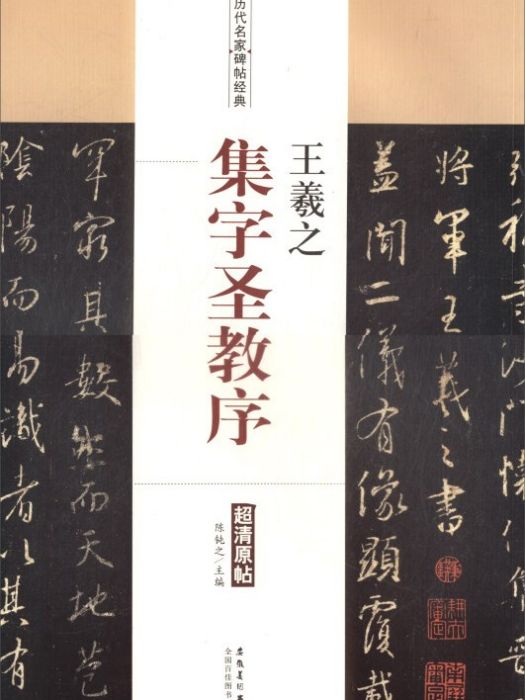 历代名家碑帖经典
王羲之
集字圣教序
超清原帖
陈钝之/主编
安徽美术
全国百佳图书
将军王羲之书
盖闻二仪有像显覆载
罕穷其数然而天地苞
阴阳而易識者以其有